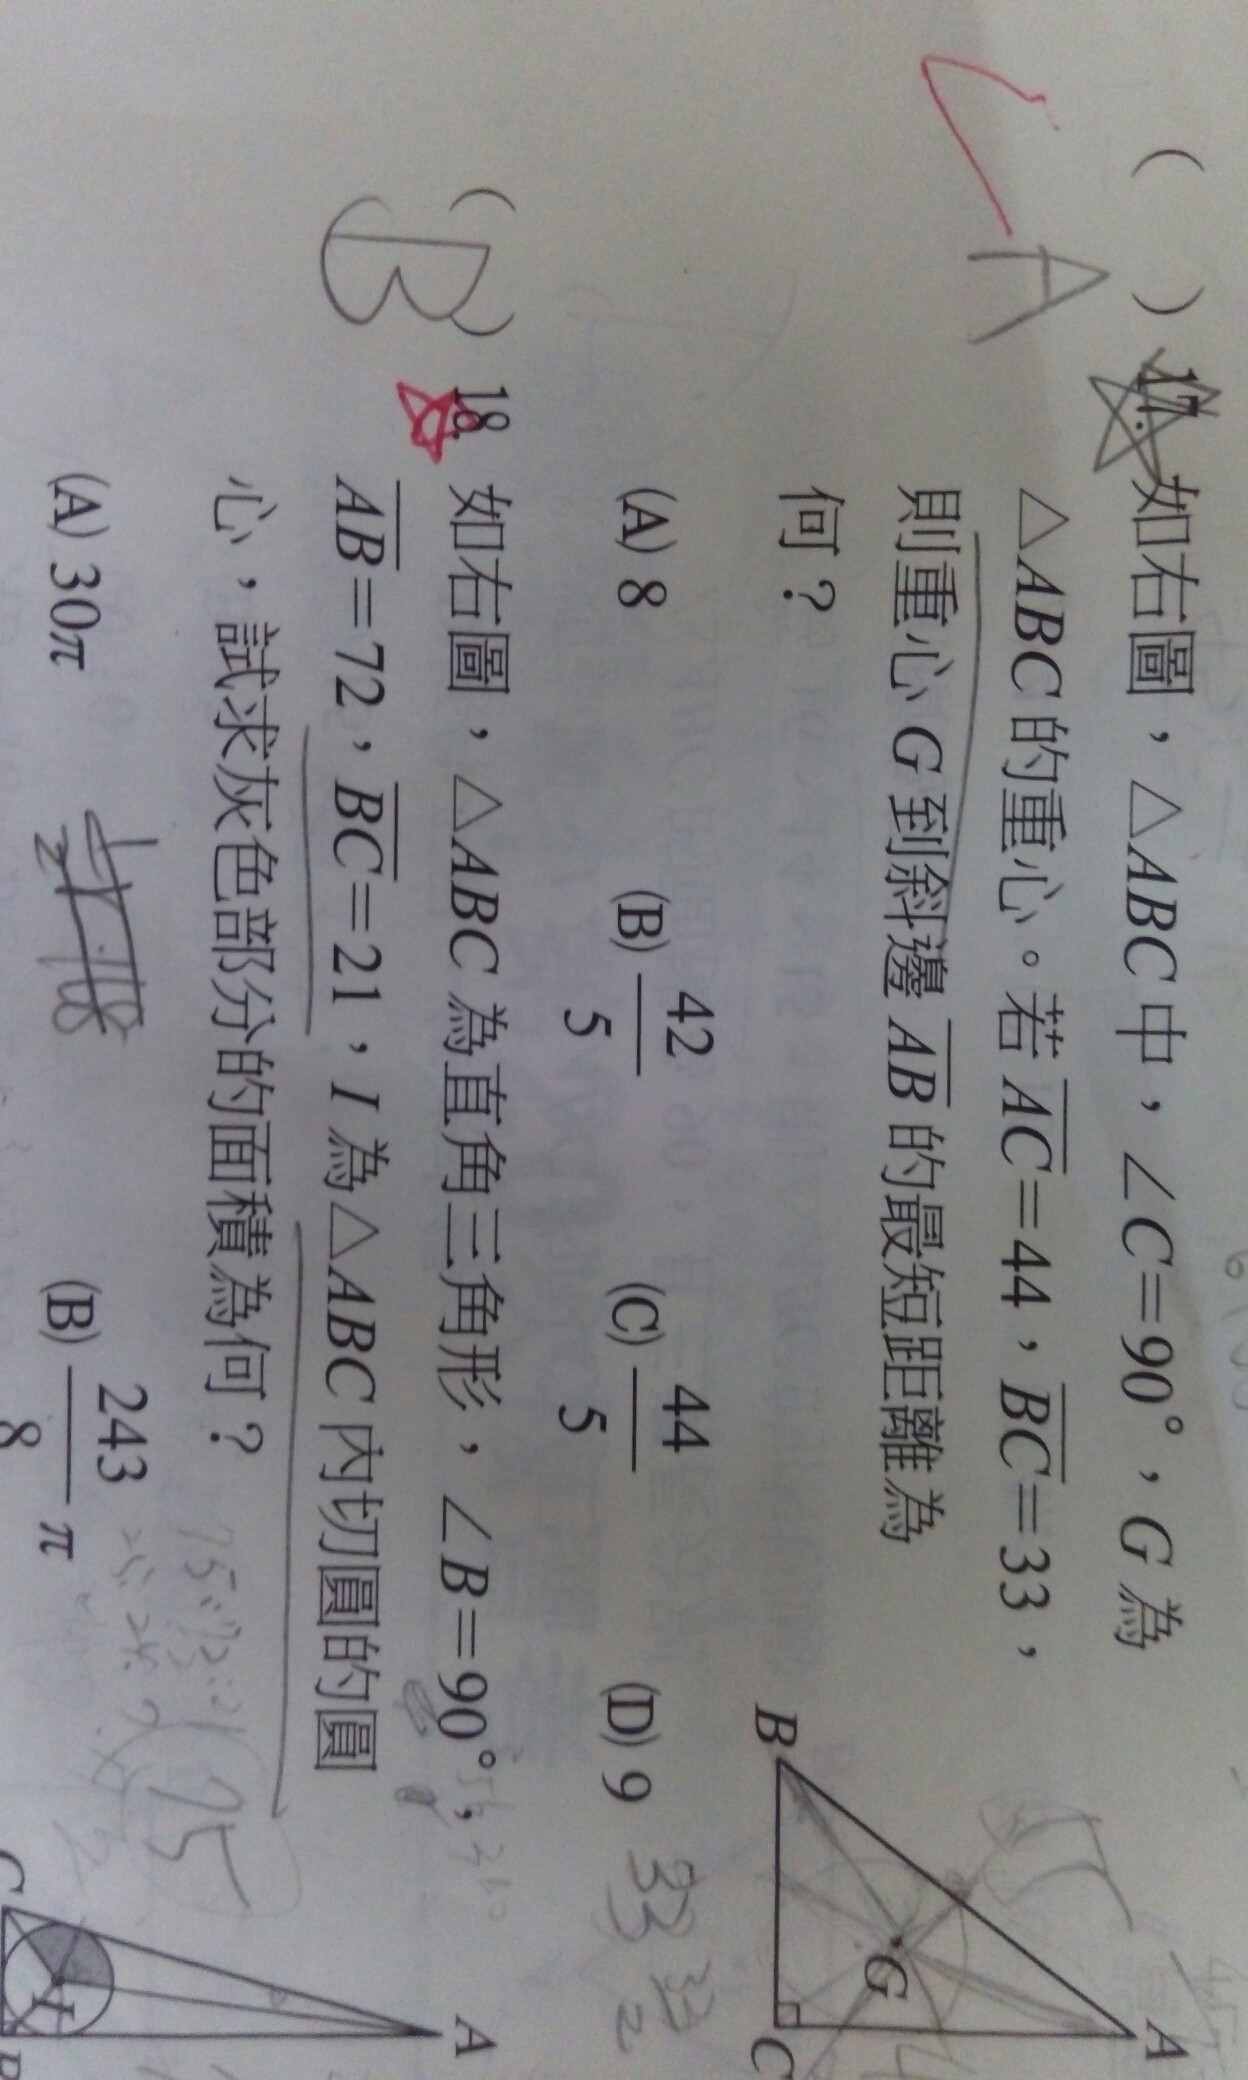 ( A ) 17. 如右圖,△ABC 中,∠C=90°,G 為
△ABC 的重心。若 AC=44,BC=33,
則重心 G 到斜邊 AB 的最短距離為
何?
(A) 8 (B) 42/5 (C) 44/5 (D) 9
B
A
G
C
( B ) 18. 如右圖,△ABC 為直角三角形,∠B=90°,
AB=72,BC=21,I 為△ABC 內切圓的圓
心,試求灰色部分的面積為何?
(A) 30π (B) 243/8 π
75
A
C
I
B